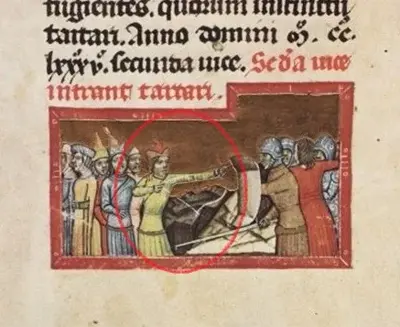 fugientes. quorum instinctu
tartari. Anno domini M. CC.
lxxxv. secunda uice. Sedᵃ uice
intrant tartari.